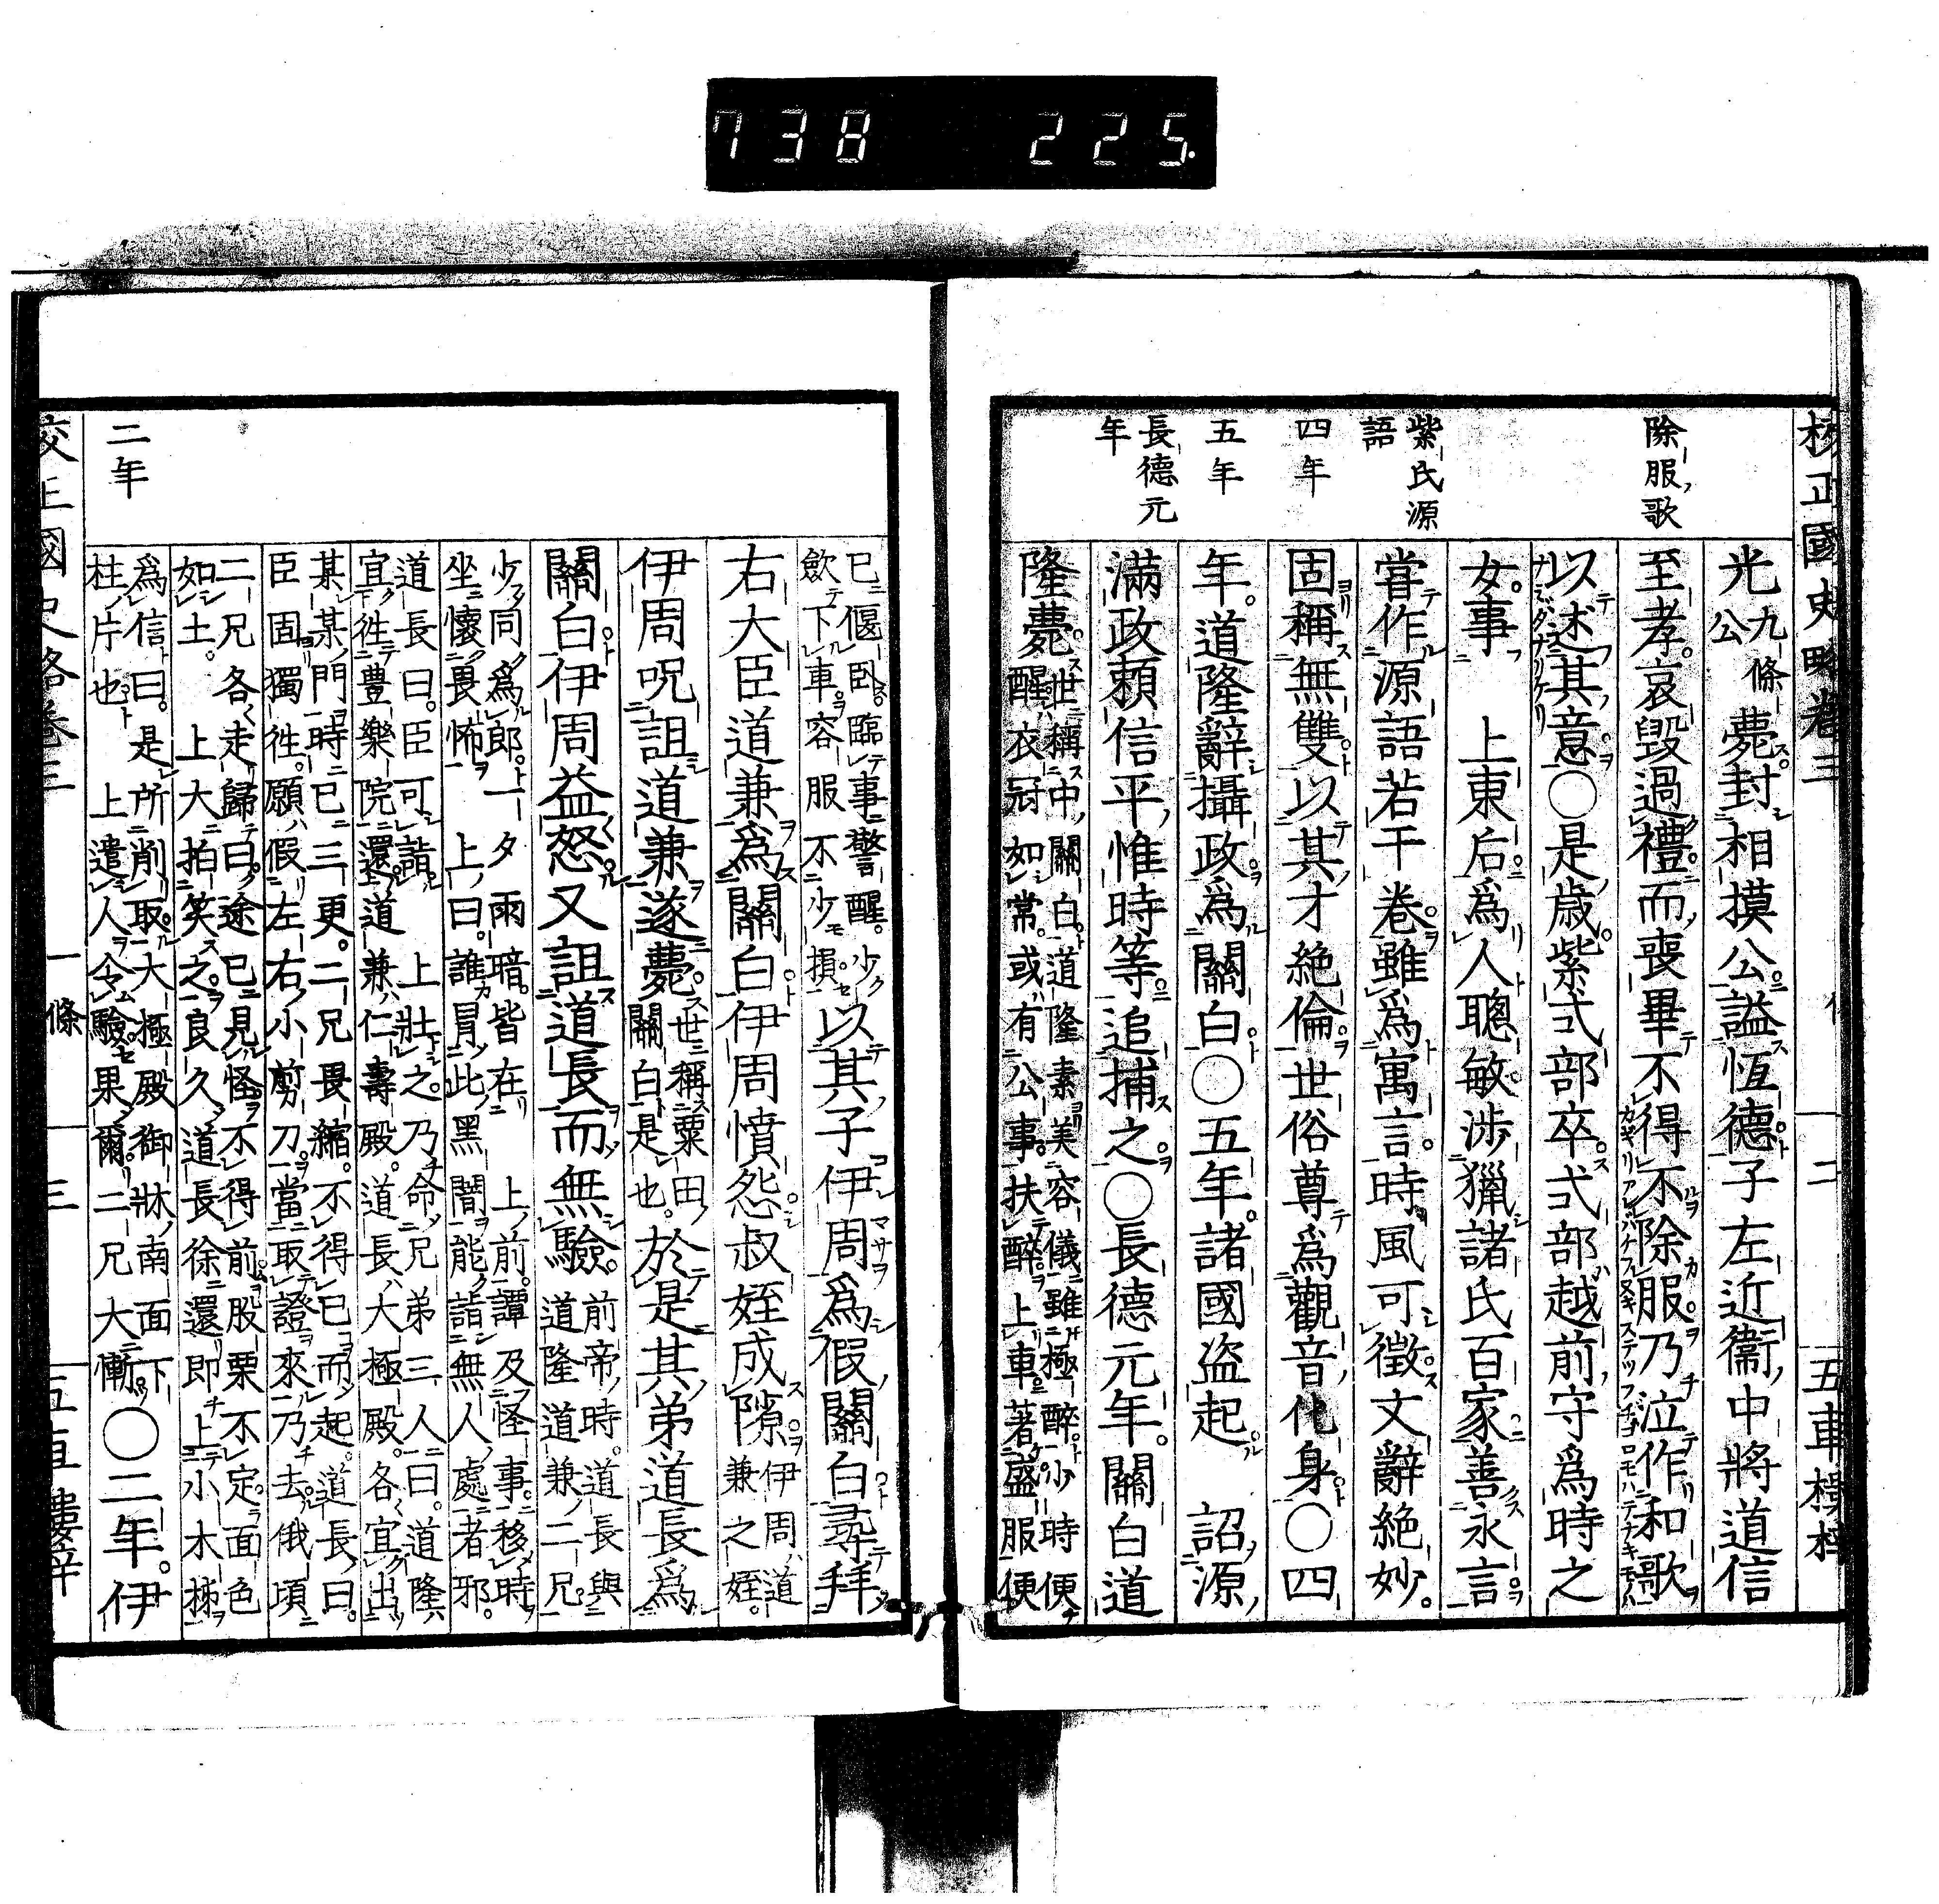 738 225.
校正國史略卷三
二
五車樓梓
除服歌
紫氏源語
四年
五年
長德元年
光九條公薨封相摸公謚恆德子左近衞中將道信
至孝哀毀過禮而喪畢不得不除服乃泣作和歌
カギリアレバケフヌギステツフヂゴロモハテナキモノハナミダナリケリ
以述其意○是歲紫式部卒式部越前守爲時之
女事 上東后爲人聰敏涉獵諸氏百家善永言
甞作源語若干卷雖爲寓言時風可徵文辭絶妙
固稱無雙以其才絶倫世俗尊爲觀音化身○四
年道隆辭攝政爲關白○五年諸國盜起 詔源
滿政賴信平惟時等追捕之○長德元年關白道
隆薨世稱中關白道隆素美容儀雖極醉小時便
醒衣冠如常或有公事扶醉上車著盛服便
已偃臥臨事警醒少
歛下車容服不少損以其子伊周爲假關白尋拜
右大臣道兼爲關白伊周憤怨叔姪成隙伊周道
兼之姪
伊周呪詛道兼遂薨世稱粟田
關白是也於是其弟道長爲
關白伊周益怒又詛道長而無驗前帝時道長與
道隆道兼二兄
少同爲郎一夕雨暗皆在 上前譚及怪事移時
坐懷畏怖 上曰誰冒此黑闇能詣無人處者邪
道長曰臣可詣 上壯之乃命兄弟三人曰道隆
宜徃豊樂院還道兼仁壽殿道長大極殿各宜出
某某門時已三更二兄畏縮不得已而起道長曰
臣固獨徃願假左右小剪刀當取證來乃去俄頃
二兄各走歸曰途已見怪不得前股栗不定面色
如土 上大拍笑之良久道長徐還即上小木㧊
爲信曰是所削取大極殿御牀南面下
柱片也 上遣人令驗果爾二兄大慚○二年伊
二年
校正國史略卷三
一條
三
五車樓梓